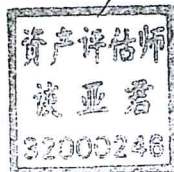 资产评估师
谈亚君
32000246